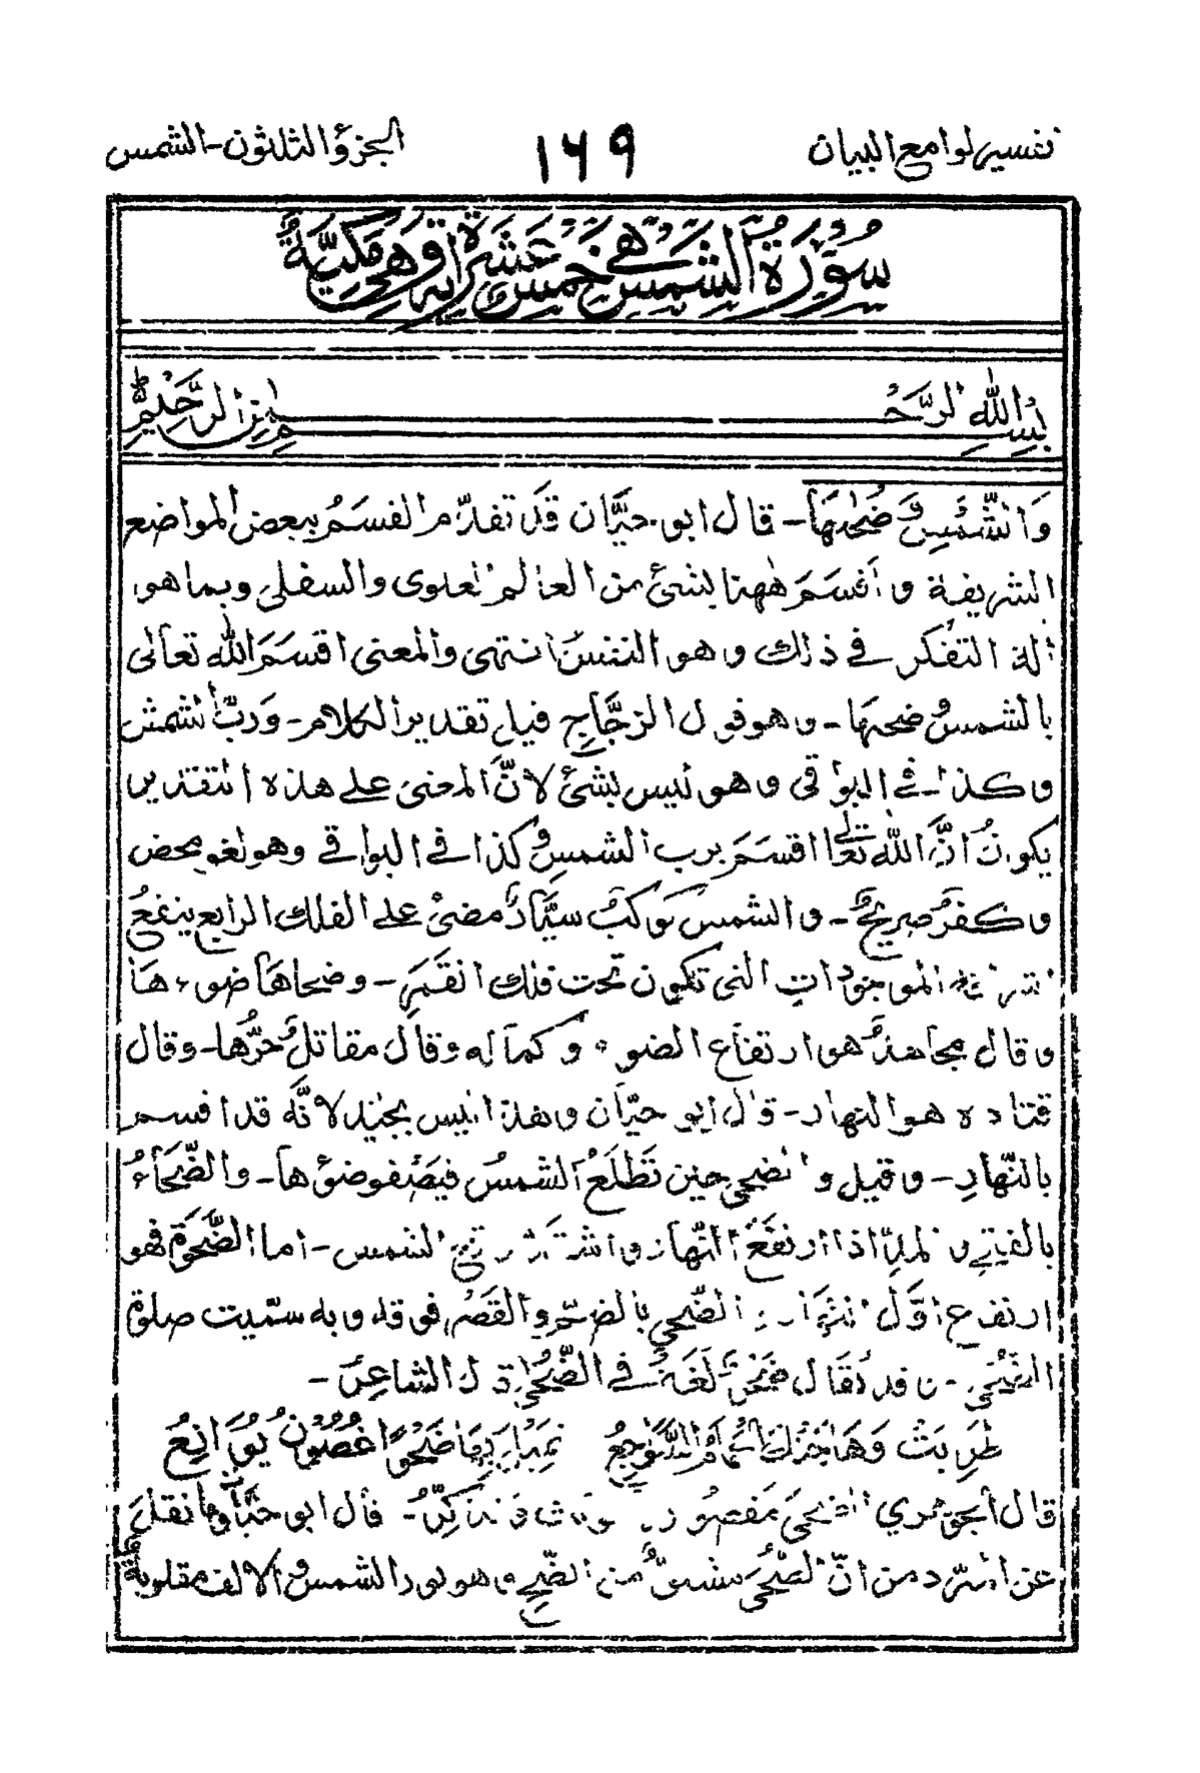 تفسير لوامع البيان
١٦٩
الجزؤ الثلثون-الشمس
سُوْرَةُ الشَّمْسِ هِيَ خَمْسَ عَشَرَةَ اٰيةً وَهِيَ مَكِيَّةٌ
بِسْمِ اللهِ الرَّحْمٰنِ الرَّحِيْمِ
وَالشَّمْسِ وَضُحٰهَا- قال ابو حيَّان قَدْ تقدّم القسَمُ ببعض المواضع
الشريفة و أَقسَمَ هٰهنا بشئ من العالم العلوى والسفلى وبما هو
آلة التفكر فى ذلك وهو النفسُ انتهى والمعنى اقسَمَ اللهُ تعالٰى
بالشمس وضحٰها- وهو قول الزجَّاجِ قيل تقدير الكلام- وَربِّ الشمس
وكذا فى البواقى وهو ليس بشئ لانَّ المعنىٰ على هذه التقدير
يكونُ انَّ اللهَ تعالى اقسَمَ برب الشمس وكذا فى البواقى وهو لغو محض
وكفرٌ صريحٌ- والشمس كوكبٌ سيَّارٌ مضئٌ على الفلك الرابع ينفعُ
الموجودات التى تكون تحت فلك القمَرِ- وضحاها ضوءها
وقال مجاهدٌ هو ارتفاع الضوء وكماله وقال مقاتلٌ حَرُّها- وقال
قتاده هو النهار- قال ابو حيّان وهذا ليس بجيّد لانَّه قد اقسم
بالنّهارِ- وقيل والضحى حين تَطْلَعُ الشمسُ فيصْفو ضوؤها- والضَّحَاءُ
بالفتح و المدِّ اذا ارتفَعَ النّهار و اشتدّ الشمس- اما الضَّحوَةُ فهو
ارتفاع اوّل النهار الضّحى بالضمّ والقصْر فوقه وبه سمّيت صلوة
الضُّحى- و قد يُقَال لُغَةٌ فى الضُّحٰى قال الشاعِرُ-
طَرِبْتَ وَهَاجَتْكَ الحَمَامُ السَّوَاجِعُ تَمِيْلُ بِهَا ضَحْوًا غُصُوْنٌ يَوَانِعُ
قال الجوهرى الضحىٰ مَقصُورٌ يونث و تذكّرُ- قال ابو حيّان وما نقل
عن المبرّد من انّ الضُّحىٰ مشتقٌّ من الضِّحِ وهو نور الشمس والالف مقلوبةٌ